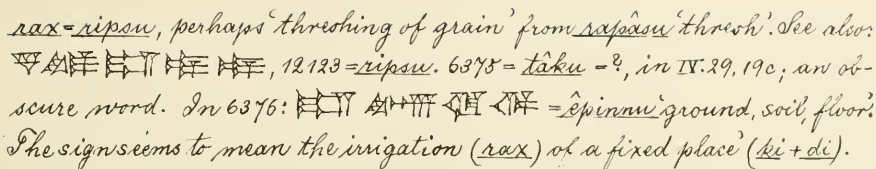 rax=ripsu, perhaps 'threshing of grain' from rapâsu 'thresh'. See also:
, 12123=ripsu. 6375=tâku=?, in IV.29,19c; an ob-
scure word. In 6376: =êpinnu 'ground, soil, floor'.
The sign seems to mean the irrigation (rax) of a fixed place' (ki+di).